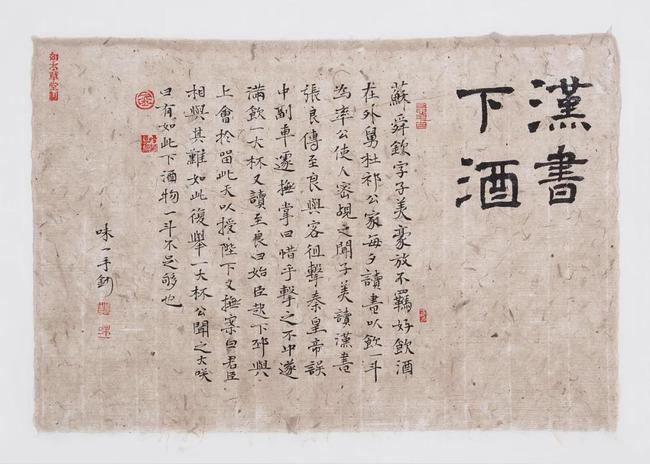 漢書
下酒
蘇舜欽字子美豪放不羈好飲酒
在外舅杜祁公家每夕讀書以飲一斗
為率公使人密覘之聞子美讀漢書
張良傳至良與客徂擊秦皇帝誤
中副車遽撫掌曰惜乎擊之不中遂
滿飲一大杯又讀至良曰始臣起下邳與
上會於留此天以授陛下又撫案曰君臣
相與其難如此復舉一大杯公聞之大咲
曰有如此下酒物一斗不足够也
味一手鈔